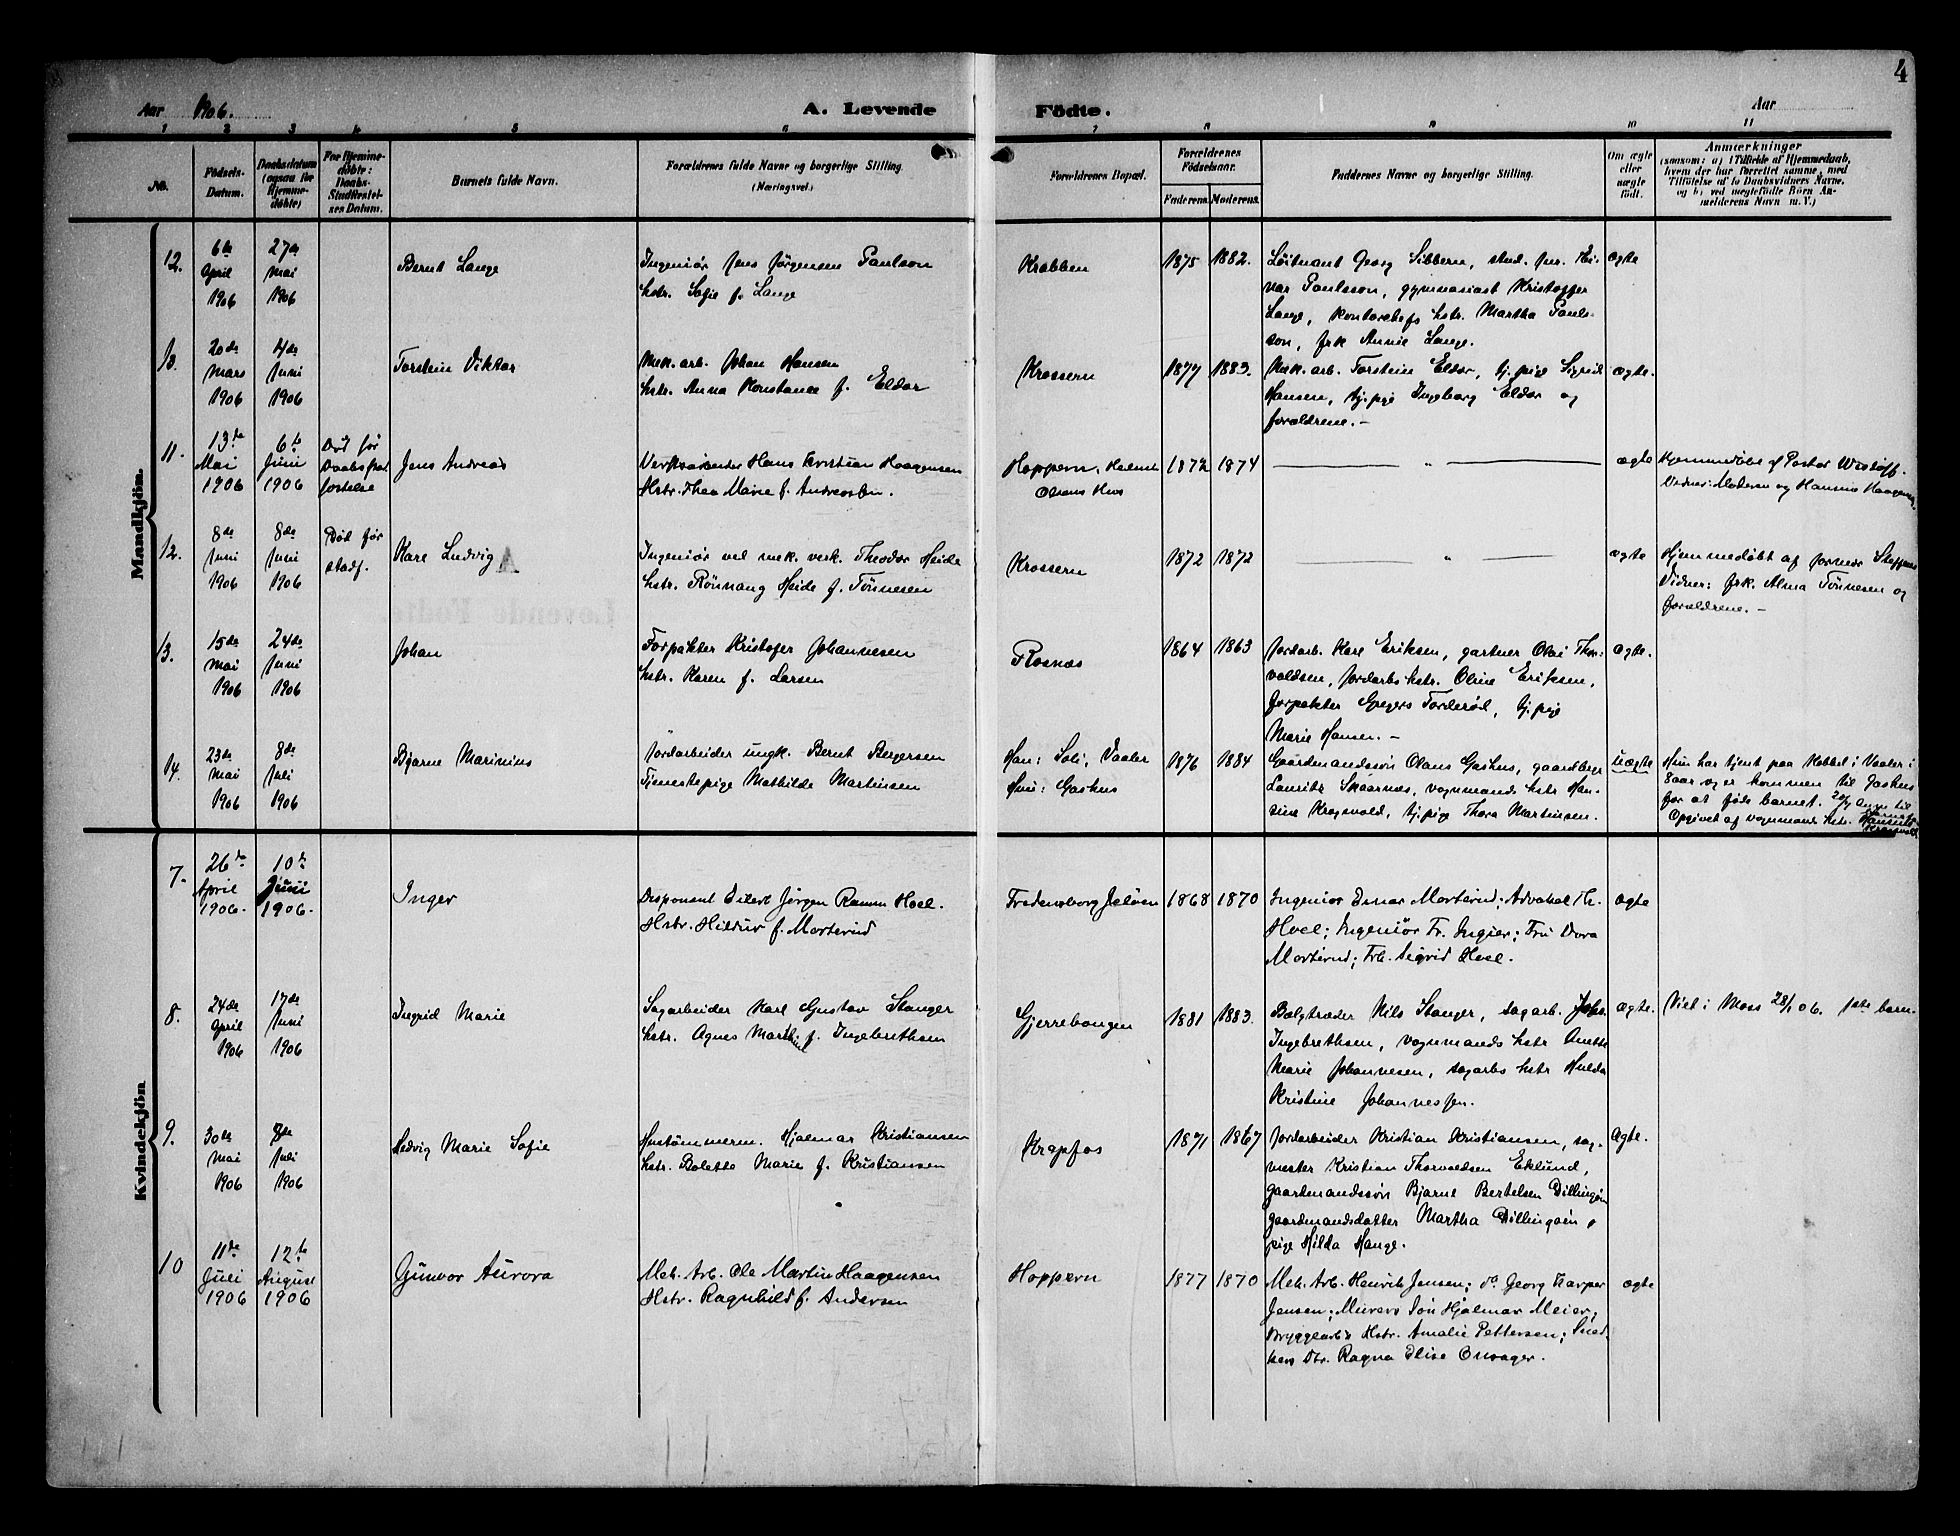 4
Aar 1906. A. Levende Födte. Aar
1 2 3 4 5 6 7 8 9 10 11
No. Födsels-Datum. Daabsdatum (ogsaa for Hjemme-döbte) For Hjemme-döbte: Daabs-Stadfæstel-ses Datum. Barnets fulde Navn. Forældrenes fulde Navne og borgerlige Stilling. (Næringsvei.) Forældrenes Bopæl. Forældrenes Födselsaar. Faderens. Moderens. Faddernes Navne og borgerlige Stilling. Om ægte eller uægte födt. Anmærkninger
(saasom: a) i Tilfælde af Hjemmedaab,
hvem der har forrettet samme, med
Tilföielse af to Daabsvidners Navne,
og b) ved uægtefödte Börn An-
melderens Navn m. V.)
Mandkjön.
12.
6te
April
1906
27de
Mai
1906
Bernt Lange
Ingeniör Jens Jörgensen Paulson
hstr. Sofie f. Lange
Krabben
1875 1882.
Löitnant Georg Sibbern, stud. jur. Ei-
nar Paulsson, gymnasiast Kristoffer
Lange, kontorchefs hstr. Martha Pauls-
son, frk Annie Lange.
ægte
20de
Mars
1906
4de
Juni
1906
Torstein Viktor
Mek. arb. Johan Hansen
hstr. Anna Konstance f. Eldor
Krossern
1877 1883.
Mek. arb. Torstein Eldor, tj.pige Sigrid
Hansen, tj.pige Ingeborg Eldor og
forældrene. -
ægte.
11.
13de
Mai
1906
6te
Juni
1906
Död för
Daabsstad
fæstelse
Jens Andreas
Verftsarbeider Hans Kristian Haagensen
Hstr. Thea Marie f. Andreasen.
Hoppern,
Olsens Hus
1872 1874
— " —
ægte
Hjemmedöbt af Pastor
Vidner: Moderen og Hansine Haagensen
12.
8de
Juni
1906
8de
Juni
1906
Död för
stadf.
Kare Ludvig
Ingeniör ved mek. verk. Theodor Heide
hstr. Rönnaug Heide f. Tönnesen
Krossern
1872 1872
— " —
ægte
Hjemmedöbt af jormor Steffens
Vidner: frk. Alma Tönnesen og
forældrene. -
13.
15de
Mai
1906
24de
Juni
1906
Johan
Forpakter Kristofer Johannesen
hstr. Karen f. Larsen
Rosnæs
1864 1863
Jordarb. Karl Eriksen, gartner Olai Thor-
valdsen, jordarbs hstr. Oline Eriksen,
forpakter Gregers Torderöd, tj.pige
Marie Hansen. -
ægte.
14.
23de
Mai
1906
8de
Juli
1906
Bjarne Marinius
Jordarbeider ungk. Bernt Bergersen
Tjenestepige Mathilde Martinsen
Han: Soli, Vaaler
Hun: Gashus
1876 1884
Gaardmandssön Olaus Gashus, gaardbgr
Lauritz Skaarnes, vognmands hstr Han-
sine Krogsvold, tj.pige Thora Martinsen.
uægte
Hun har tjent paa Kobbel i Vaaler i
8 aar og er kommen til Gashus
for at föde barnet.
Opgivet af vognmands hstr. Hansine
Krogsvold
Kvindekjön
7.
26de
April
1906.
10de
Juni
1906.
Inger
Disponent Eilert Jörgen Ramm Hoel.
Hstr. Hildur f. Morterud
Fredensborg Jelöen
1868 1870
Ingeniör Einar Morterud; Advokat Th.
Hoel; Ingeniör Fr. Ingier; Fru Dora
Morterud; Frk. Sigrid Hoel.
ægte
8.
24de
April
1906
17de
Juni
1906
Ingrid Marie
Sagarbeider Karl Gustav Stanger
hstr. Agnes Mathilde f. Ingebrethsen
Gjerrebougen
1881 1883.
Bælgtræder Nils Stanger, sagarb. Johs.
Ingebrethsen, vognmands hstr Anette
Marie Johannesen, sagarbs hstr Hulda
Kristine Johannessen.
ægte.
Viet i Moss 28/1 06. 1ste barn.
9.
30de
Mai
1906
8de
Juli
1906
Hedvig Marie Sofie
Hustömmerm. Hjalmar Kristiansen
hstr. Bolette Marie f. Kristiansen
Krapfos
1871 1867
Jordarbeider Kristian Kristiansen, sag-
mester Kristian Thorvaldsen Eklund,
gaardmandssön Bjarne Bertelsen Dillingöen
gaardmandsdatter Martha Dillingöen,
pige Hilda Hauge.
Ægte.
10
11de
Juli
1906
12te
August
1906
Gunvor Aurora
Mek. Arb. Ole Martin Haagensen
Hstr. Ragnhild f. Andersen
Hoppern
1877 1870
Mek. Arb. Henrik Jensen; do Georg Kasper
Jensen; Murers Sön Hjalmar Meier;
Bryggearb's Hstr. Amalie Pettersen; Sned-
kers Dtr. Ragna Elise Onsager.
ægte